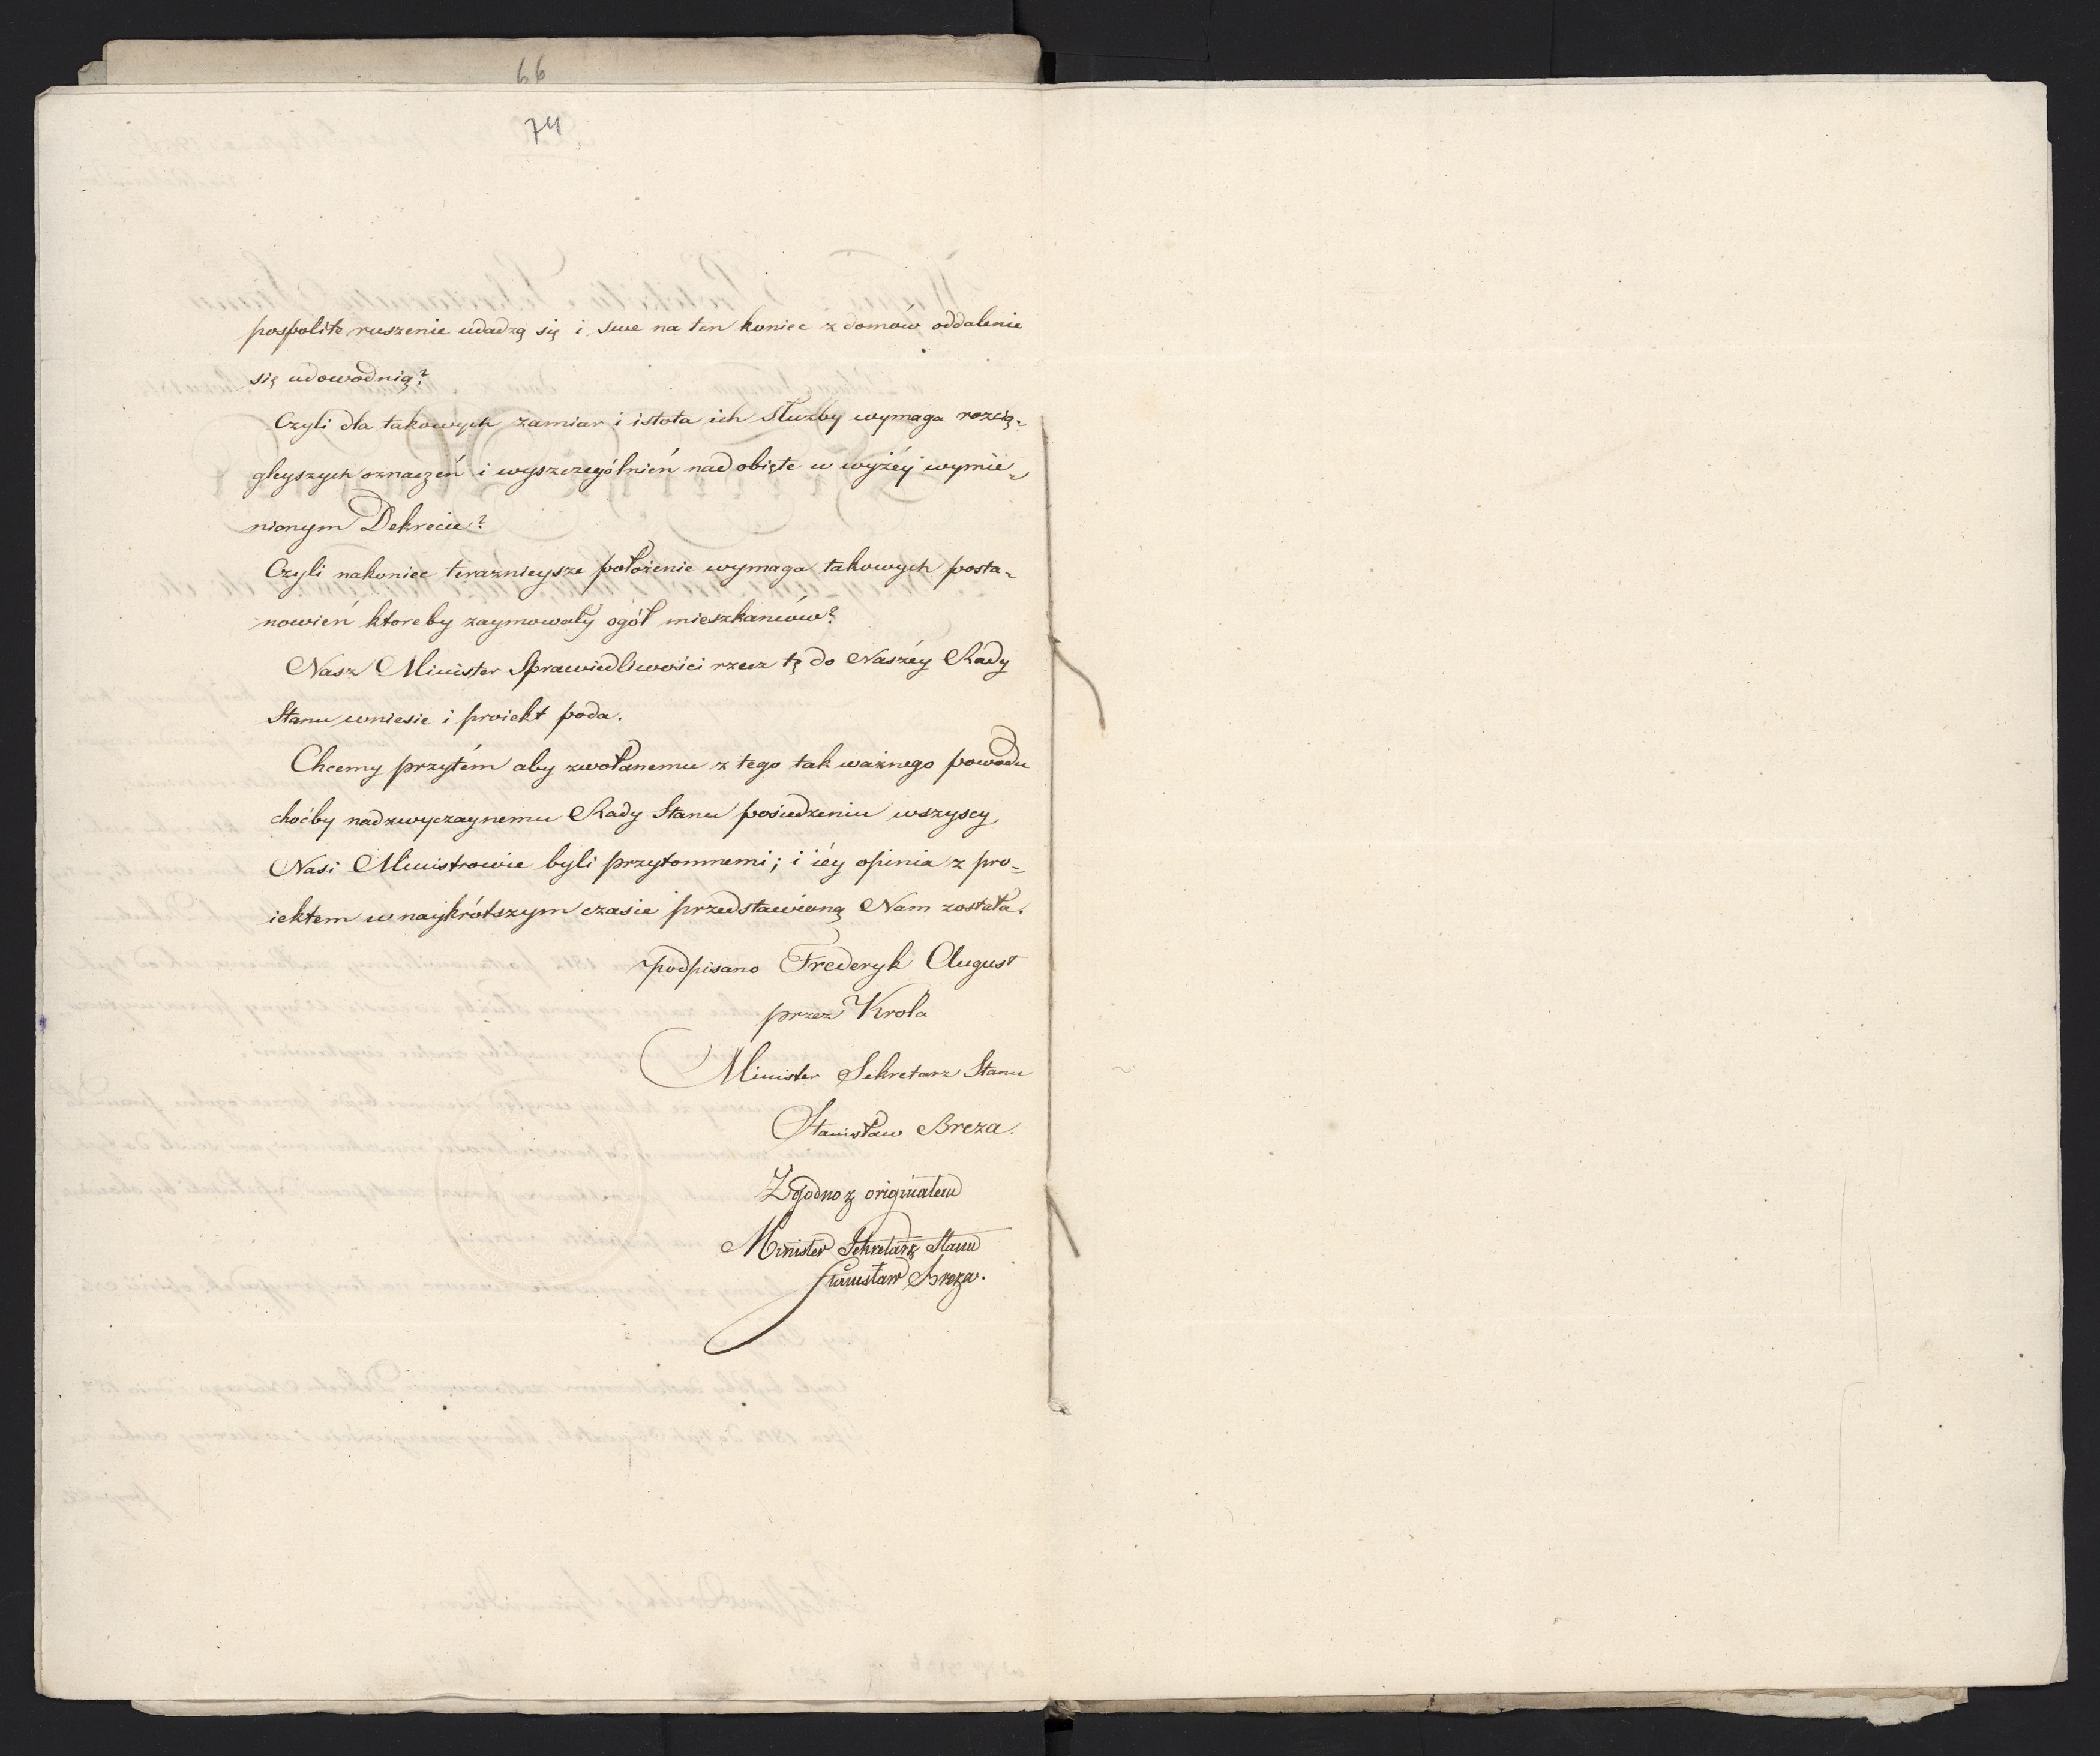 66
74
pospolite ruszenie udadzą się i swe na ten koniec z domow oddalenie
się udowodnią?
Czyli dla takowych zamiar i istota ich służby wymaga rozcią-
gleyszych oznaczeń i wyszczególnień nad obięte w wyżéy wymie-
nionym Dekrecie?
Czyli nakoniec teraznieysze położenie wymaga takowych posta-
nowień ktoreby zaymowały ogół mieszkanców?
Nasz Minister Sprawiedliwości rzecz tę do Naszéy Rady
Stanu wniesie i proiekt poda.
Chcemy przytém aby zwołanemu z tego tak ważnego powodu
choćby nadzwyczaynemu Rady Stanu posiedzeniu wszyscy
Nasi Ministrowie byli przytomnemi; i iéy opinia z pro-
iektem w naykrótszym czasie przedstawioną Nam została.
podpisano Frederyk August
przez Krola
Minister Sekretarz Stanu
Stanisław Breza.
Zgodno z originałem
Minister Sekretarz Stanu
Stanisław Breza.